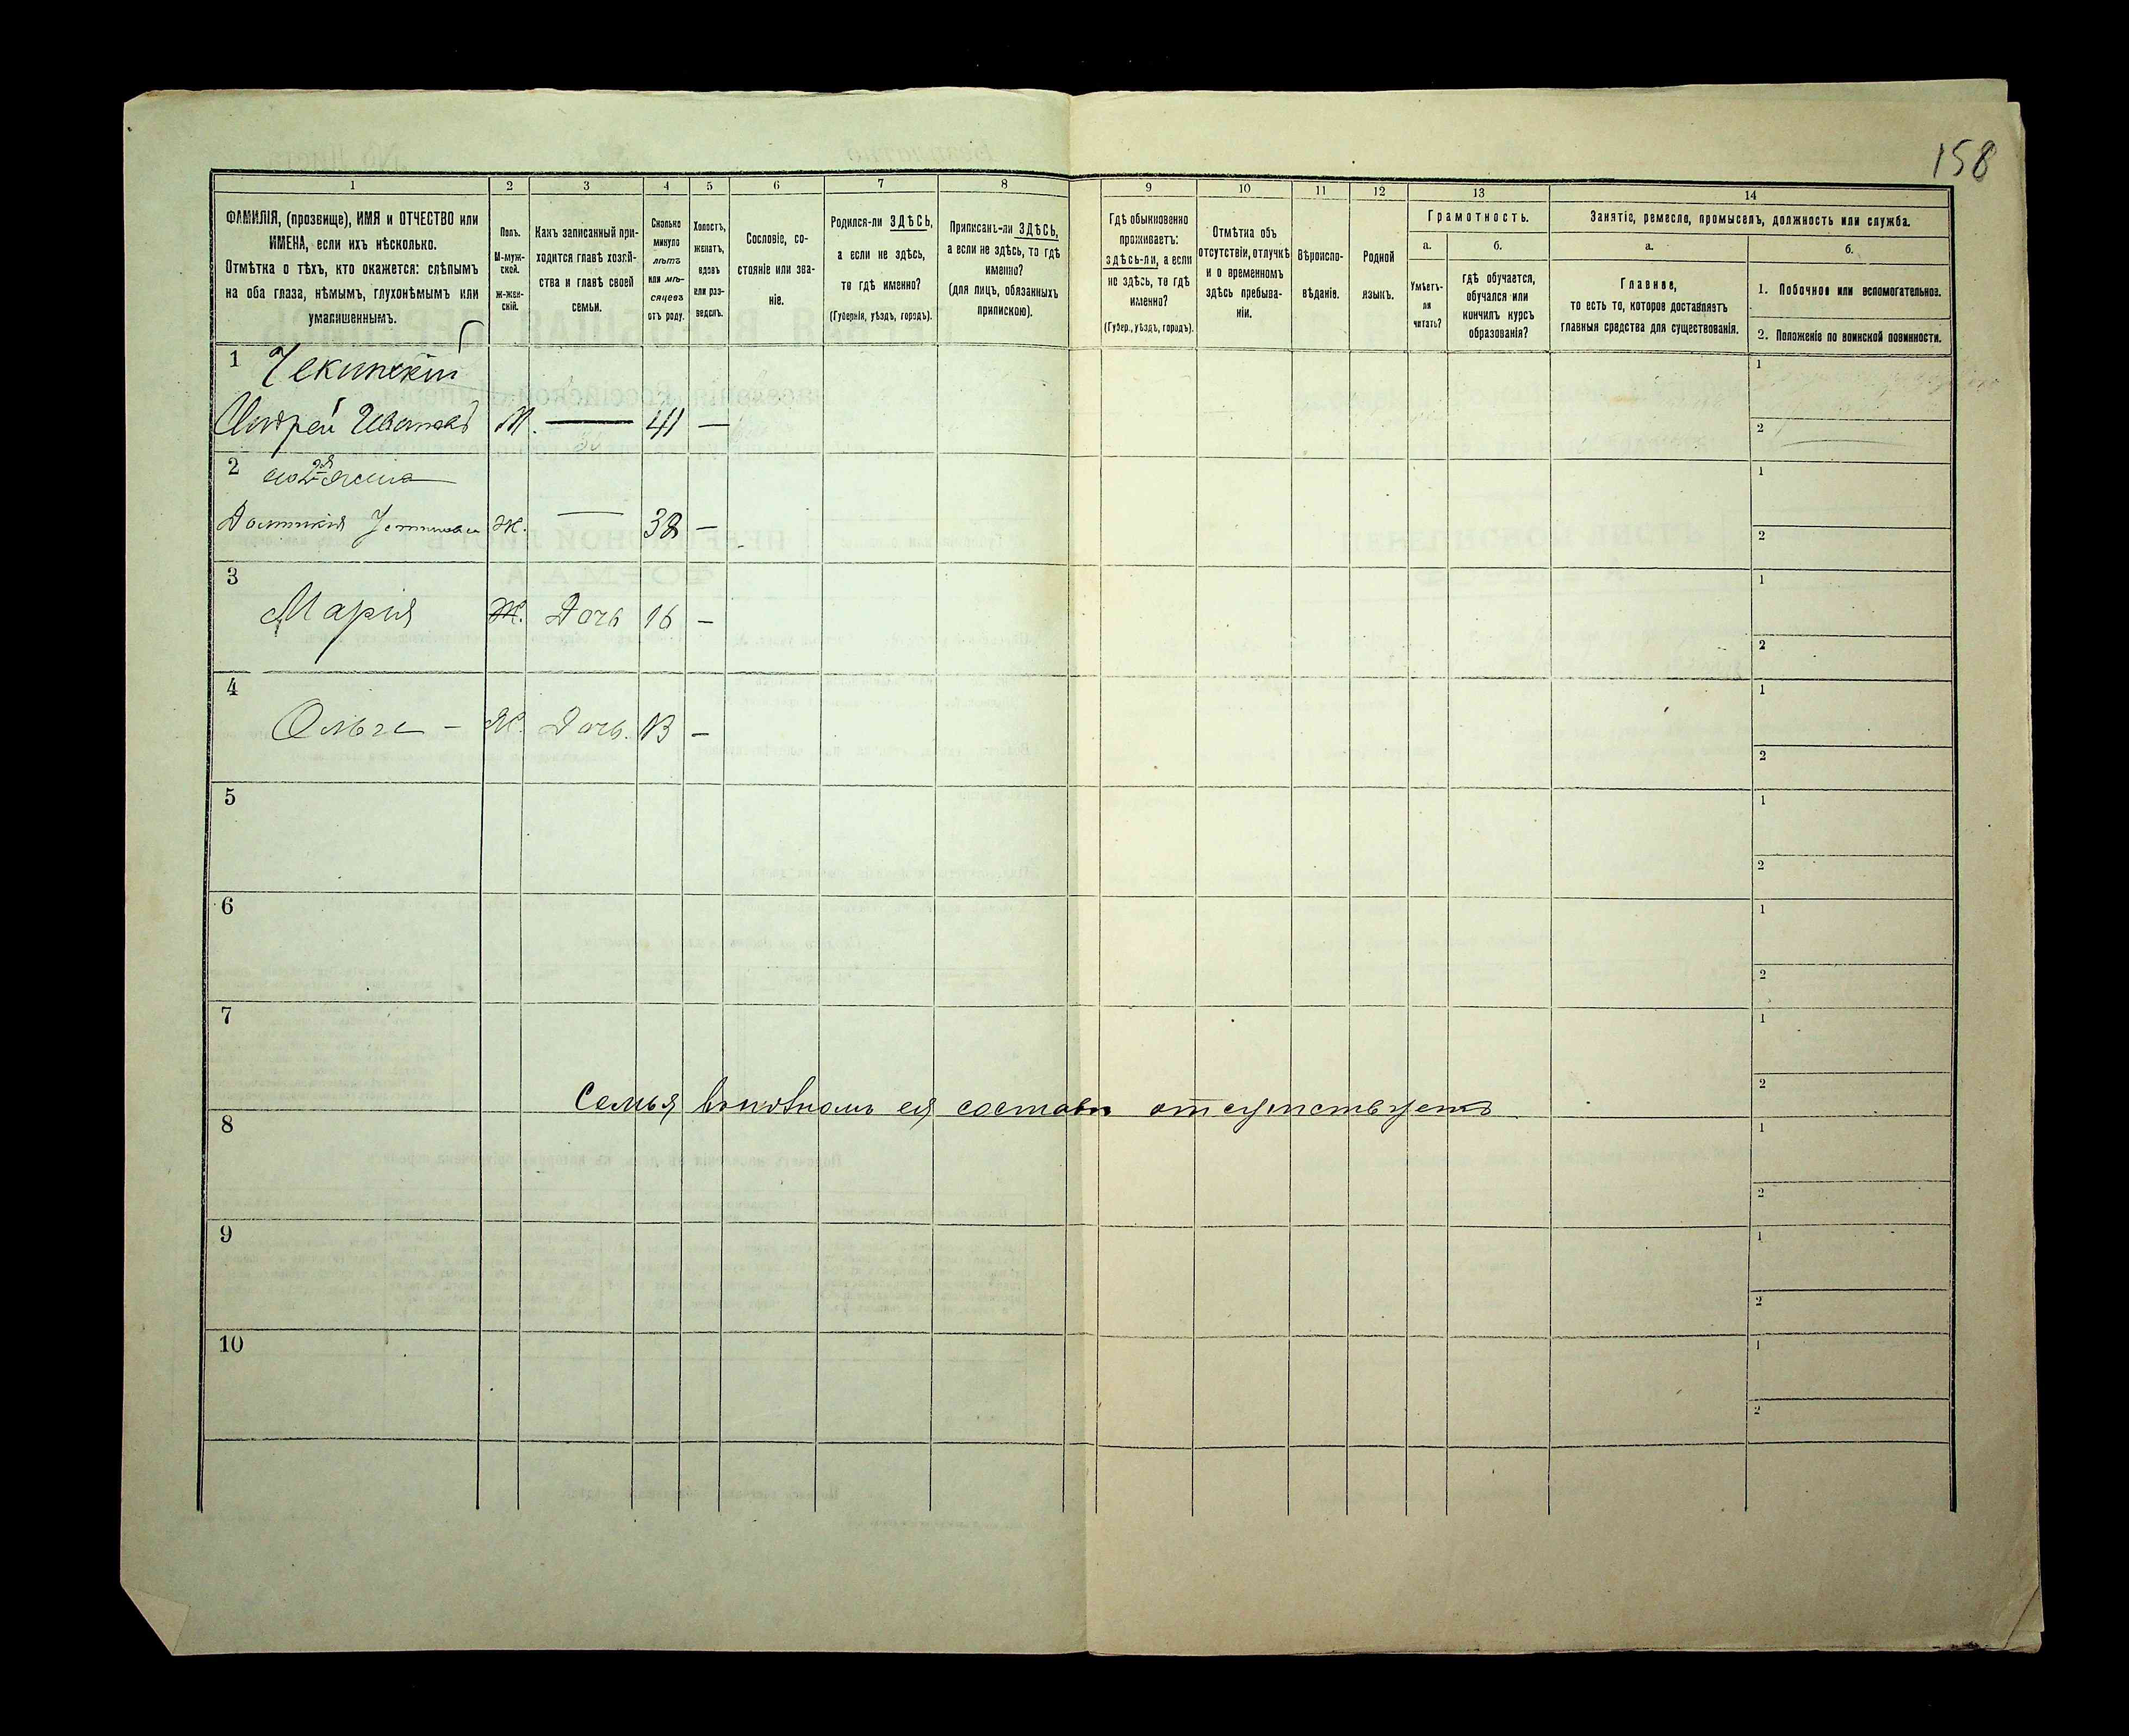 158
1 2 3 4 5 6 7 8 9 10 11 12 13 14
ФАМИЛІЯ, (прозвище), ИМЯ и ОТЧЕСТВО или
ИМЕНА, если ихъ нѣсколько.
Отмѣтка о тѣхъ, кто окажется: слѣпымъ
на оба глаза, нѣмымъ, глухонѣмымъ или
умалишеннымъ.
Полъ.
М-муж-
ской.
ж-жен-
скій.
Какъ записанный при-
ходится главѣ хозяй-
ства и главѣ своей
семьи.
Сколько
минуло
лѣтъ
или мѣ-
сяцевъ
отъ роду.
Холостъ,
женатъ,
вдовъ
или раз-
веденъ.
Сословіе, со-
стояніе или зва-
ніе.
Родился-ли ЗДѢСЬ,
а если не здѣсь,
то гдѣ именно?
(Губернія, уѣздъ, городъ).
Приписанъ-ли ЗДѢСЬ,
а если не здѣсь, то гдѣ
именно?
(для лицъ, обязанныхъ
припискою).
Гдѣ обыкновенно
проживаетъ:
здѣсь-ли, а если
не здѣсь, то гдѣ
именно?
(Губер., уѣздъ, городъ).
Отмѣтка объ
отсутствіи, отлучкѣ
и о временномъ
здѣсь пребыва-
ніи.
Вѣроиспо-
вѣданіе.
Родной
языкъ.
Грамотность.
а.
Умѣетъ-
ли
читать?
б.
гдѣ обучается,
обучался или
кончилъ курсъ
образованія?
Занятіе, ремесло, промыселъ, должность или служба.
а.
Главное,
то есть то, которое доставляетъ
главныя средства для существованія.
б.
1. Побочное или вспомогательное.
2. Положеніе по воинской повинности.
1
Андрей М. — 41 —
1
2
2
Ж. — 38 —
1
2
3
Марія Ж. Дочь 16 —
1
2
4
Ольга — Ж. Дочь. 13 —
1
2
5
1
2
6
1
2
7
1
2
Семья вполномъ ея составѣ отсутствуетъ
8
1
2
9
1
2
10
1
2